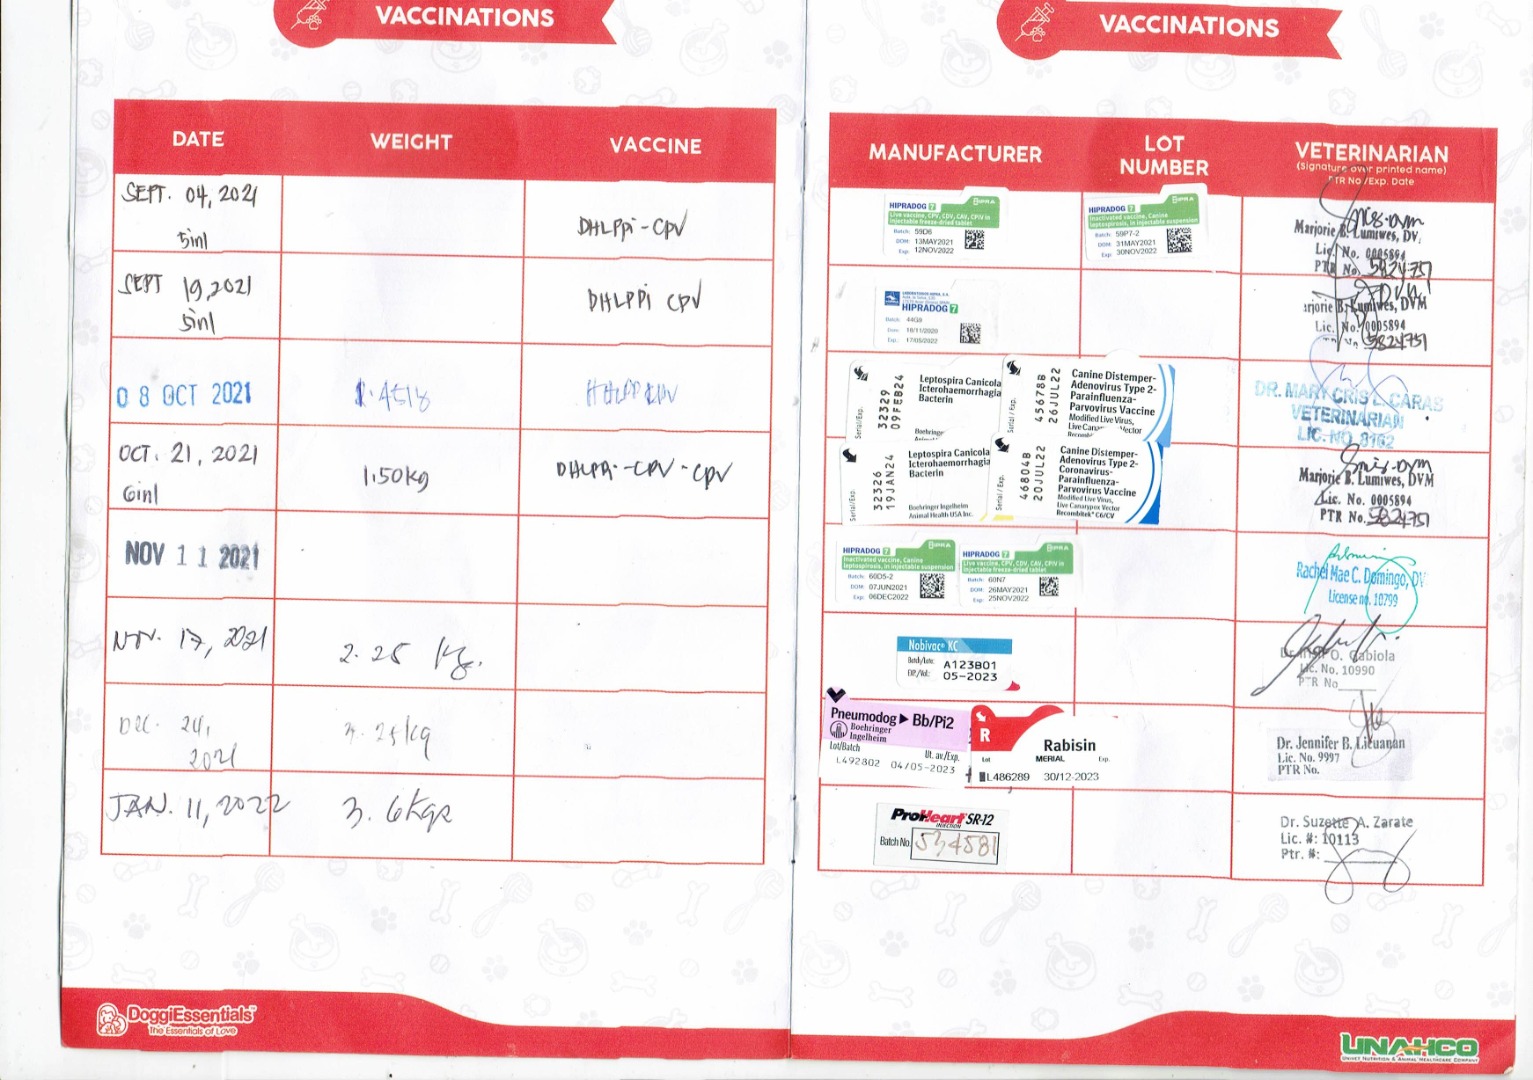 VACCINATIONS
DATE WEIGHT VACCINE
SEPT. 04, 2021
5in1
DHLPPi-CPV
SEPT 19, 2021
5in1
DHLPPi CPV
08 OCT 2021
OCT. 21, 2021
6in1
1.50kg
DHLPPi-CPV-CPV
NOV 11 2021
NOV. 17, 2021
2.25 kg.
DEC. 24,
2021
3.25kg
JAN. 11, 2022
3.6kgs
DoggiEssentials
The Essentials of Love
VACCINATIONS
MANUFACTURER
LOT
NUMBER
VETERINARIAN
(Signature over printed name)
PTR No/Exp. Date
HIPRADOG 7
HIPRA
Live vaccine, CPV, CDV, CAV, CPIV in
injectable freeze-dried tablet
Batch: 59D6
DOM: 13MAY2021
Exp: 12NOV2022
HIPRADOG 7
HIPRA
Inactivated vaccine, Canine
leptospirosis, in injectable suspension
Batch: 59P7-2
DOM: 31MAY2021
Exp: 30NOV2022
Marjorie B. Lumiwes, DV
Lic. No. 0005894
PTR No. 5824751
LABORATORIOS HIPRA, S.A.
HIPRADOG 7
Batch: 44G9
Date: 18/11/2020
Exp.: 17/05/2022
arjorie B. Lumiwes, DVM
Lic. No. 0005894
5824751
Serial/Exp.
32329
09FEB24
Leptospira Canicola
Icterohaemorrhagia
Bacterin
Boehringer
Serial / Exp.
45678B
26JUL22
Canine Distemper-
Adenovirus Type 2-
Parainfluenza-
Parvovirus Vaccine
Modified Live Virus,
Live Canarypox Vector
DR. MARY CRIS L. CARAS
VETERINARIAN
LIC. NO. 8162
Serial/Exp.
32326
19JAN24
Leptospira Canicola
Icterohaemorrhagia
Bacterin
Boehringer Ingelheim
Animal Health USA Inc.
Serial / Exp.
46804B
20JUL22
Canine Distemper-
Adenovirus Type 2-
Coronavirus-
Parainfluenza-
Parvovirus Vaccine
Modified Live Virus,
Live Canarypox Vector
Recombitek® C6/CV
Marjorie B. Lumiwes, DVM
Lic. No. 0005894
PTR No. 5824751
HIPRADOG 7
HIPRA
Inactivated vaccine, Canine
leptospirosis, in injectable suspension
Batch: 60D5-2
DOM: 07JUN2021
Exp: 06DEC2022
HIPRADOG 7
HIPRA
Live vaccine, CPV, CDV, CAV, CPIV in
injectable freeze-dried tablet
Batch: 60N7
DOM: 26MAY2021
Exp: 25NOV2022
Rachel Mae C. Domingo, DV
License no. 10799
Nobivac® KC
A123B01
05-2023
O. Gabiola
Lic. No. 10990
PTR No
Pneumodog ▶ Bb/Pi2
Boehringer
Ingelheim
Lot/Batch
Ut. av./Exp.
L492802 04/05-2023
R
Rabisin
Lot MERIAL Exp.
L486289 30/12-2023
Dr. Jennifer B. Licuanan
Lic. No. 9997
PTR No.
ProHeart SR-12
INJECTION
Batch No. 534581
Dr. Suzette A. Zarate
Lic. #: 10113
Ptr. #:
UNAHCO
UNIVET NUTRITION & ANIMAL HEALTHCARE COMPANY